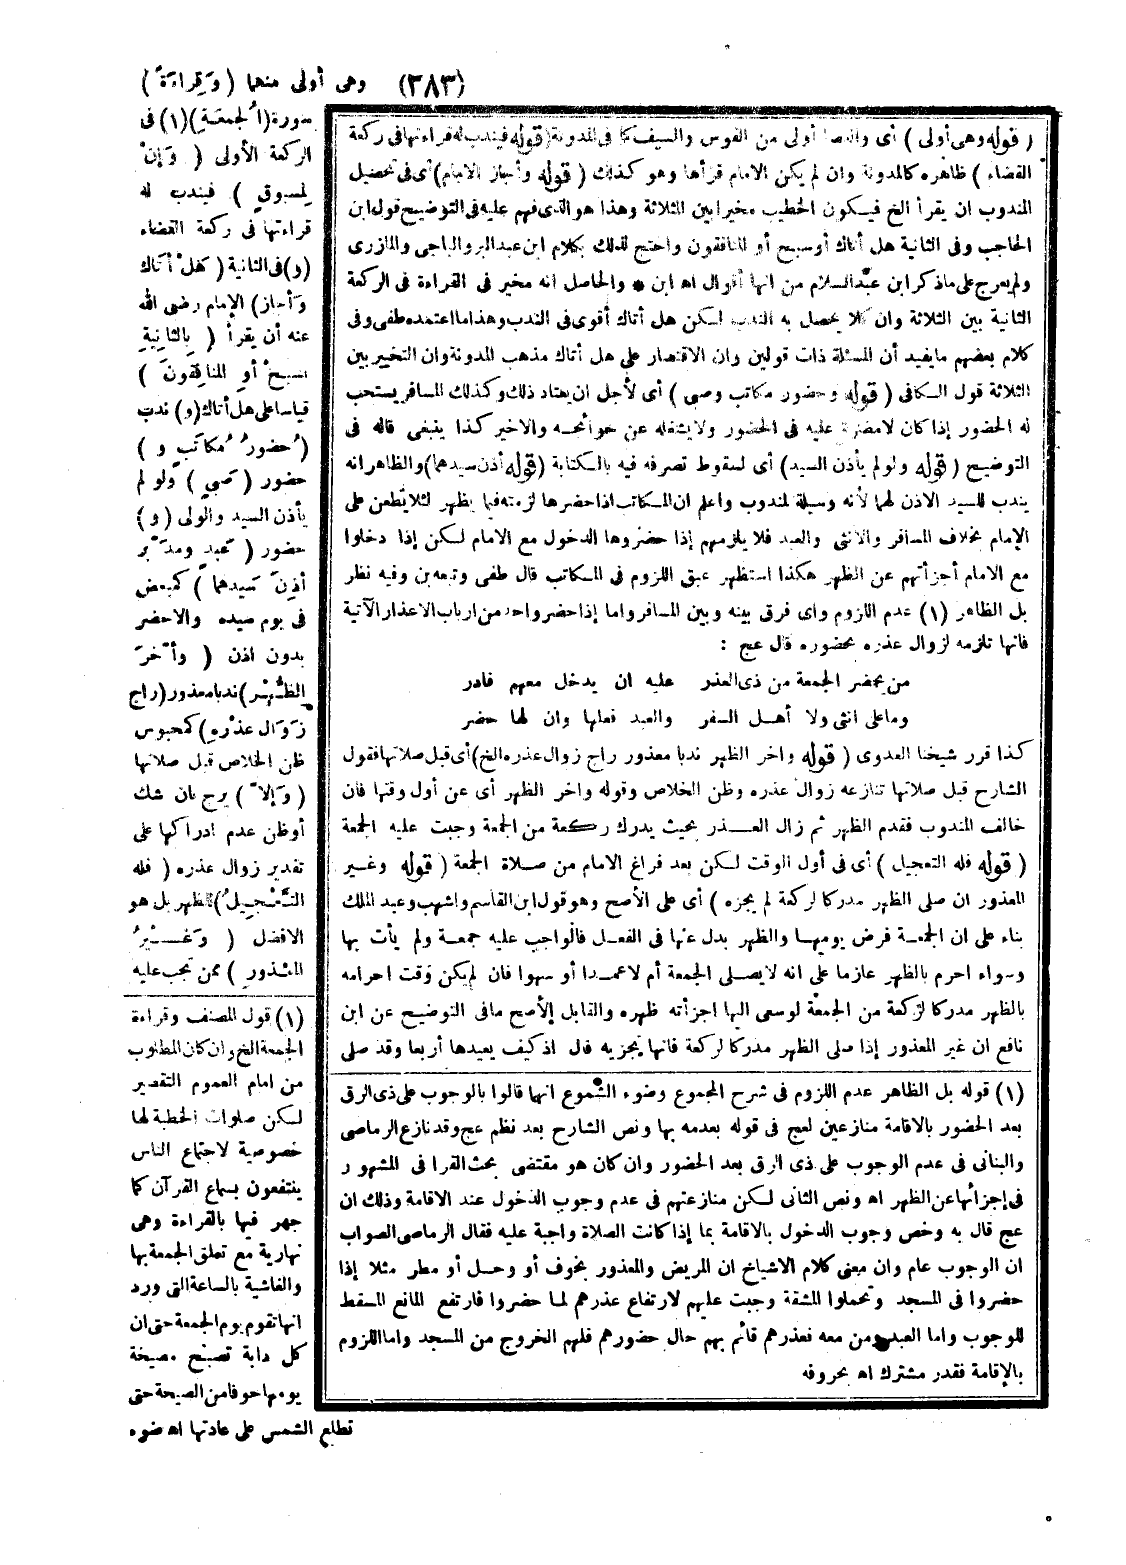 (٣٨٣)
وهى أولى منهما ( وَقِراءَةُ )
سورة (الجُمعَةِ)(١) فى
الركعة الأولى ( وَإِنْ
لمسبوقٍ ) فيندب له
قراءتها فى ركعة القضاء
(و) فى الثانية ( هَلْ أتَاك
وَأجاز) الإمام رضى الله
عنه أن يقرأ ( بِالثانِيَةِ
بسبحْ أو المنافِقونَ )
قياسا على هل أتاك (و) ندب
(حُضورُ مُكاتَبٍ و )
حضور ( صَبىٍ ) ولو لم
يأذن السيد والولى ( و )
حضور ( عَبدٍ ومدَبَّرٍ
أذِنَ سَيدهما ) كمبعض
فى يوم سيده والا حضر
بدون اذن ( وأخَّرَ
الظُّهْرَ) ندبا معذور (راجٍ
زَوَالَ عذْرِهِ) كمحبوس
ظن الخلاص قبل صلاتها
( وَإلاَّ ) يرج بان شك
أو ظن عدم ادراكها على
تقدير زوال عذره ( فله
التَّعْجِيلُ) للظهر بل هو
الافضل ( وَغَـيْرُ
المعْذور ) ممن تجب عليه
(١) قول المصنف وقراءة
الجمعة الخ وان كان المطلوب
من امام العموم التقصير
لكن صلوات الخطبة لها
خصوصية لاجتماع الناس
ينتفعون بسماع القرآن كما
جهر فيها بالقراءة وهى
نهارية مع تعلق الجمعة بها
والغاشية بالساعة التى ورد
انها تقوم يوم الجمعة حتى ان
كل دابة تصبح مصيخة
يومها خوفا من الصيحة حتى
تطلع الشمس على عادتها اه ضوء
( قوله وهى أولى ) أى والعصا أولى من القوس والسيف كما فى المدونة (قوله فيندب له قراءتها فى ركعة
القضاء ) ظاهره كالمدونة وان لم يكن الامام قرأها وهو كذلك ( قوله وأجاز الامام) أى فى تحصيل
المندوب ان يقرأ الخ فيكون الخطيب مخيرا بين الثلاثة وهذا هو الذى فهم عليه فى التوضيح قول ابن
الحاجب وفى الثانية هل أتاك أو سبح أو المنافقون واحتج لذلك بكلام ابن عبد البر والباجى والمازرى
ولم يعرج على ماذكر ابن عبد السلام من انها أقوال اه ابن * والحاصل انه مخير فى القراءة فى الركعة
الثانية بين الثلاثة وان كلا يحصل به الندب لكن هل أتاك أقوى فى الندب وهذا ما اعتمده طفى وفى
كلام بعضهم مايفيد أن المسئلة ذات قولين وان الاقتصار على هل أتاك مذهب المدونة وان التخيير بين
الثلاثة قول الكافى ( قوله وحضور مكاتب وصبى ) أى لأجل ان يعتاد ذلك وكذلك المسافر يستحب
له الحضور إذا كان لامضرة عليه فى الحضور ولايشغله عن حوائجه والاخير كذا ينبغى قاله فى
التوضيح ( قوله ولو لم يأذن السيد) أى لسقوط تصرفه فيه بالكتابة (قوله أذن سيدهما) والظاهر انه
يندب للسيد الاذن لهما لأنه وسيلة لمندوب واعلم ان المكاتب اذا حضرها لزمته فيما يظهر لئلا يُطعن على
الإمام بخلاف المسافر والانثى والعبد فلا يلزمهم إذا حضروها الدخول مع الامام لكن إذا دخلوا
مع الامام أجزأتهم عن الظهر هكذا استظهر عبق اللزوم فى المكاتب قال طفى وتبعه بن وفيه نظر
بل الظاهر (١) عدم اللزوم واى فرق بينه وبين المسافر واما إذا حضر واحد من ارباب الاعذار الآتية
فانها تلزمه لزوال عذره بحضوره قال عج :
من يحضر الجمعة من ذى العذر عليه ان يدخل معهم فادر
وما على انثى ولا أهـل السفر والعبد فعلها وان لها حضر
كذا قرر شيخنا العدوى ( قوله واخر الظهر ندبا معذور راج زوال عذره الخ) أى قبل صلاتها فقول
الشارح قبل صلاتها تنازعه زوال عذره وظن الخلاص وقوله واخر الظهر أى عن أول وقتها فان
خالف المندوب فقدم الظهر ثم زال العـذر بحيث يدرك ركعة من الجمعة وجبت عليه الجمعة
( قوله فله التعجيل ) أى فى أول الوقت لكن بعد فراغ الامام من صـلاة الجمعة ( قوله وغـير
المعذور ان صلى الظهر مدركا لركعة لم يجزه ) أى على الأصح وهو قول ابن القاسم واشهب وعبد الملك
بناء على ان الجمعـة فرض يومهـا والظهر بدل عنها فى الفعـل فالواجب عليه جمعـة ولم يأت بها
وسواء احرم بالظهر عازما على انه لايصـلى الجمعة أم لا عمـدا أو سهوا فان لم يكن وقت احرامه
بالظهر مدركا لركعة من الجمعة لو سعى اليها اجزأته ظهره والقابل للأصح مافى التوضيح عن ابن
نافع ان غير المعذور إذا صلى الظهر مدركا لركعة فانها تجزيه قال اذ كيف يعيدها أربعا وقد صلى
(١) قوله بل الظاهر عدم اللزوم فى شرح المجموع وضوء الشموع انها قالوا بالوجوب على ذى الرق
بعد الحضور بالاقامة منازعين لعج فى قوله بعدمه بها ونص الشارح بعد نظم عج وقد نازع الرماصى
والبنانى فى عدم الوجوب على ذى الرق بعد الحضور وان كان هو مقتضى بحث القرافى المشهور
فى إجزائها عن الظهر اه ونص الثانى لكن منازعتهم فى عدم وجوب الدخول عند الاقامة وذلك ان
عج قال به وخص وجوب الدخول بالاقامة بما إذا كانت الصلاة واجبة عليه فقال الرماصى الصواب
ان الوجوب عام وان معنى كلام الاشياخ ان المريض والمعذور بخوف أو وحل أو مطر مثلا إذا
حضروا فى المسجد وتحملوا المشقة وجبت عليهم لارتفاع عذرهم لما حضروا فارتفع المانع المسقط
للوجوب واما العبد ومن معه فعذرهم قائم بهم حال حضورهم فلهم الخروج من المسجد واما اللزوم
بالإقامة فقدر مشترك اه بحروفه